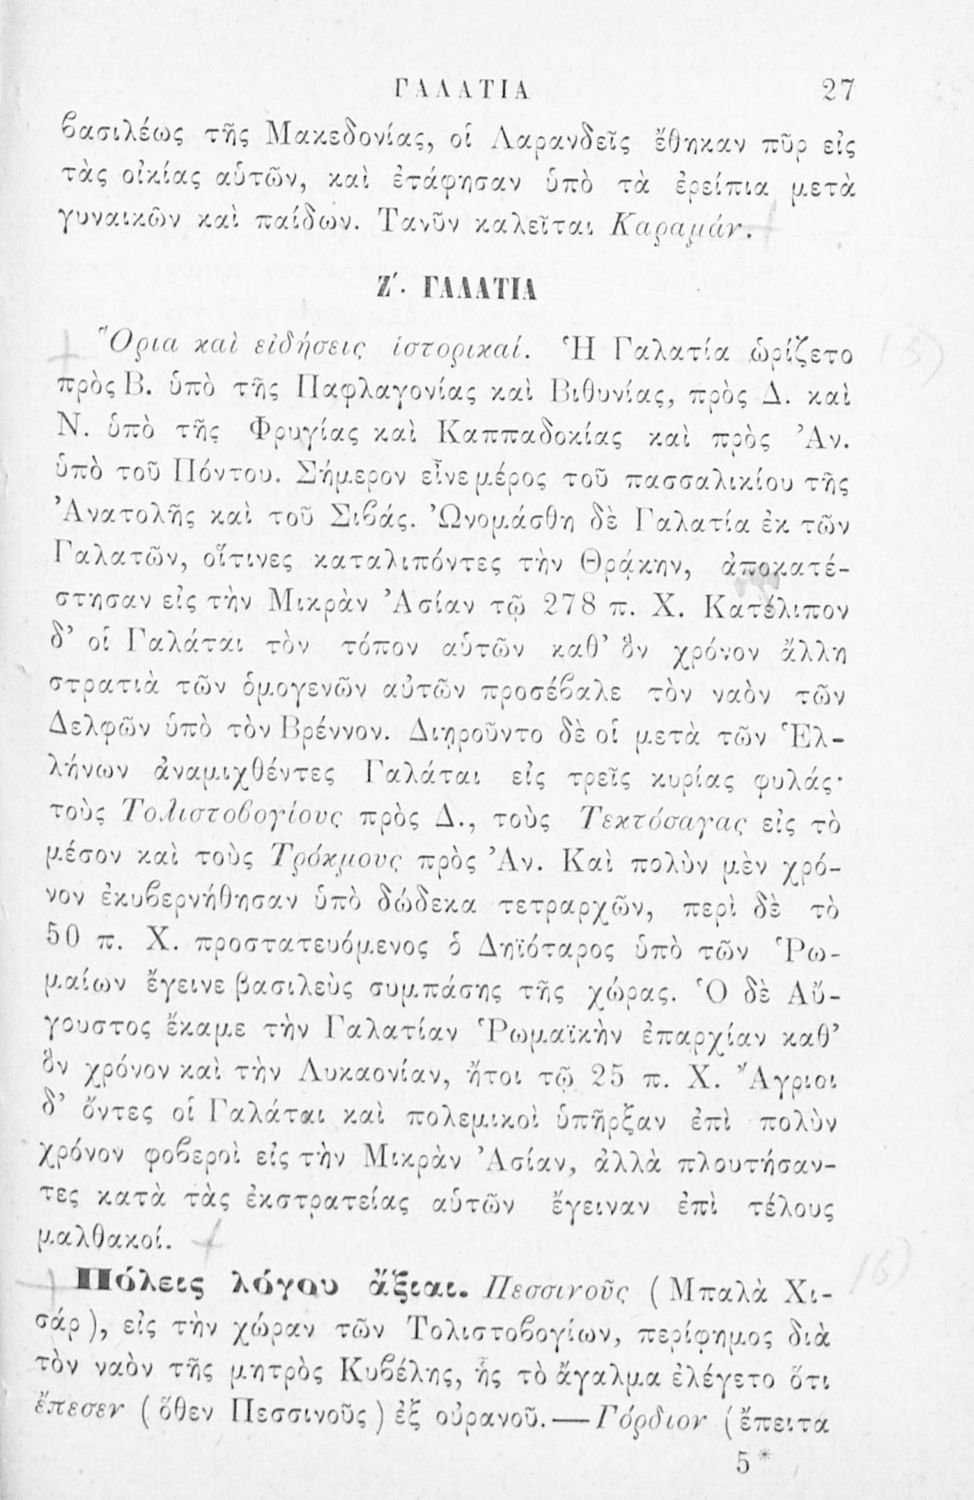 ΓΑΛΑΤΙΑ 27
βασιλέως τῆς Μακεδονίας, οἱ Λαρανδεῖς ἔθηκαν πῦρ εἰς
τὰς οἰκίας αὑτῶν, καὶ ἐτάφησαν ὑπὸ τὰ ἐρείπια μετὰ
γυναικῶν καὶ παίδων. Τανῦν καλεῖται Καραμάν.
Ζ΄. ΓΑΛΑΤΙΑ
Ὅρια καὶ εἰδήσεις ἱστορικαί. Ἡ Γαλατία ὡρίζετο
πρὸς Β. ὑπὸ τῆς Παφλαγονίας καὶ Βιθυνίας, πρὸς Δ. καὶ
Ν. ὑπὸ τῆς Φρυγίας καὶ Καππαδοκίας καὶ πρὸς Ἀν.
ὑπὸ τοῦ Πόντου. Σήμερον εἶνε μέρος τοῦ πασσαλικίου τῆς
Ἀνατολῆς καὶ τοῦ Σιβάς. Ὠνομάσθη δὲ Γαλατία ἐκ τῶν
Γαλατῶν, οἵτινες καταλιπόντες τὴν Θρᾴκην, ἀποκατέ-
στησαν εἰς τὴν Μικρὰν Ἀσίαν τῷ 278 π. Χ. Κατέλιπον
δ’ οἱ Γαλάται τὸν τόπον αὑτῶν καθ’ ὃν χρόνον ἄλλη
στρατιὰ τῶν ὁμογενῶν αὐτῶν προσέβαλε τὸν ναὸν τῶν
Δελφῶν ὑπὸ τὸν Βρέννον. Διῃροῦντο δὲ οἱ μετὰ τῶν Ἑλ-
λήνων ἀναμιχθέντες Γαλάται εἰς τρεῖς κυρίας φυλάς·
τοὺς Τολιστοβογίους πρὸς Δ., τοὺς Τεκτόσαγας εἰς τὸ
μέσον καὶ τοὺς Τρόκμους πρὸς Ἀν. Καὶ πολὺν μὲν χρό-
νον ἐκυβερνήθησαν ὑπὸ δώδεκα τετραρχῶν, περὶ δὲ τὸ
50 π. Χ. προστατευόμενος ὁ Δηϊόταρος ὑπὸ τῶν Ῥω-
μαίων ἔγεινε βασιλεὺς συμπάσης τῆς χώρας. Ὁ δὲ Αὔ-
γουστος ἔκαμε τὴν Γαλατίαν Ῥωμαϊκὴν ἐπαρχίαν καθ’
ὃν χρόνον καὶ τὴν Λυκαονίαν, ἤτοι τῷ 25 π. Χ. Ἄγριοι
δ’ ὄντες οἱ Γαλάται καὶ πολεμικοὶ ὑπῆρξαν ἐπὶ πολὺν
χρόνον φοβεροὶ εἰς τὴν Μικρὰν Ἀσίαν, ἀλλὰ πλουτήσαν-
τες κατὰ τὰς ἐκστρατείας αὑτῶν ἔγειναν ἐπὶ τέλους
μαλθακοί.
Πόλεις λόγου ἄξιαι. Πεσσινοῦς (Μπαλὰ Χι-
σάρ), εἰς τὴν χώραν τῶν Τολιστοβογίων, περίφημος διὰ
τὸν ναὸν τῆς μητρὸς Κυβέλης, ἧς τὸ ἄγαλμα ἐλέγετο ὅτι
ἔπεσεν (ὅθεν Πεσσινοῦς) ἐξ οὐρανοῦ.—Γόρδιον (ἔπειτα
5*